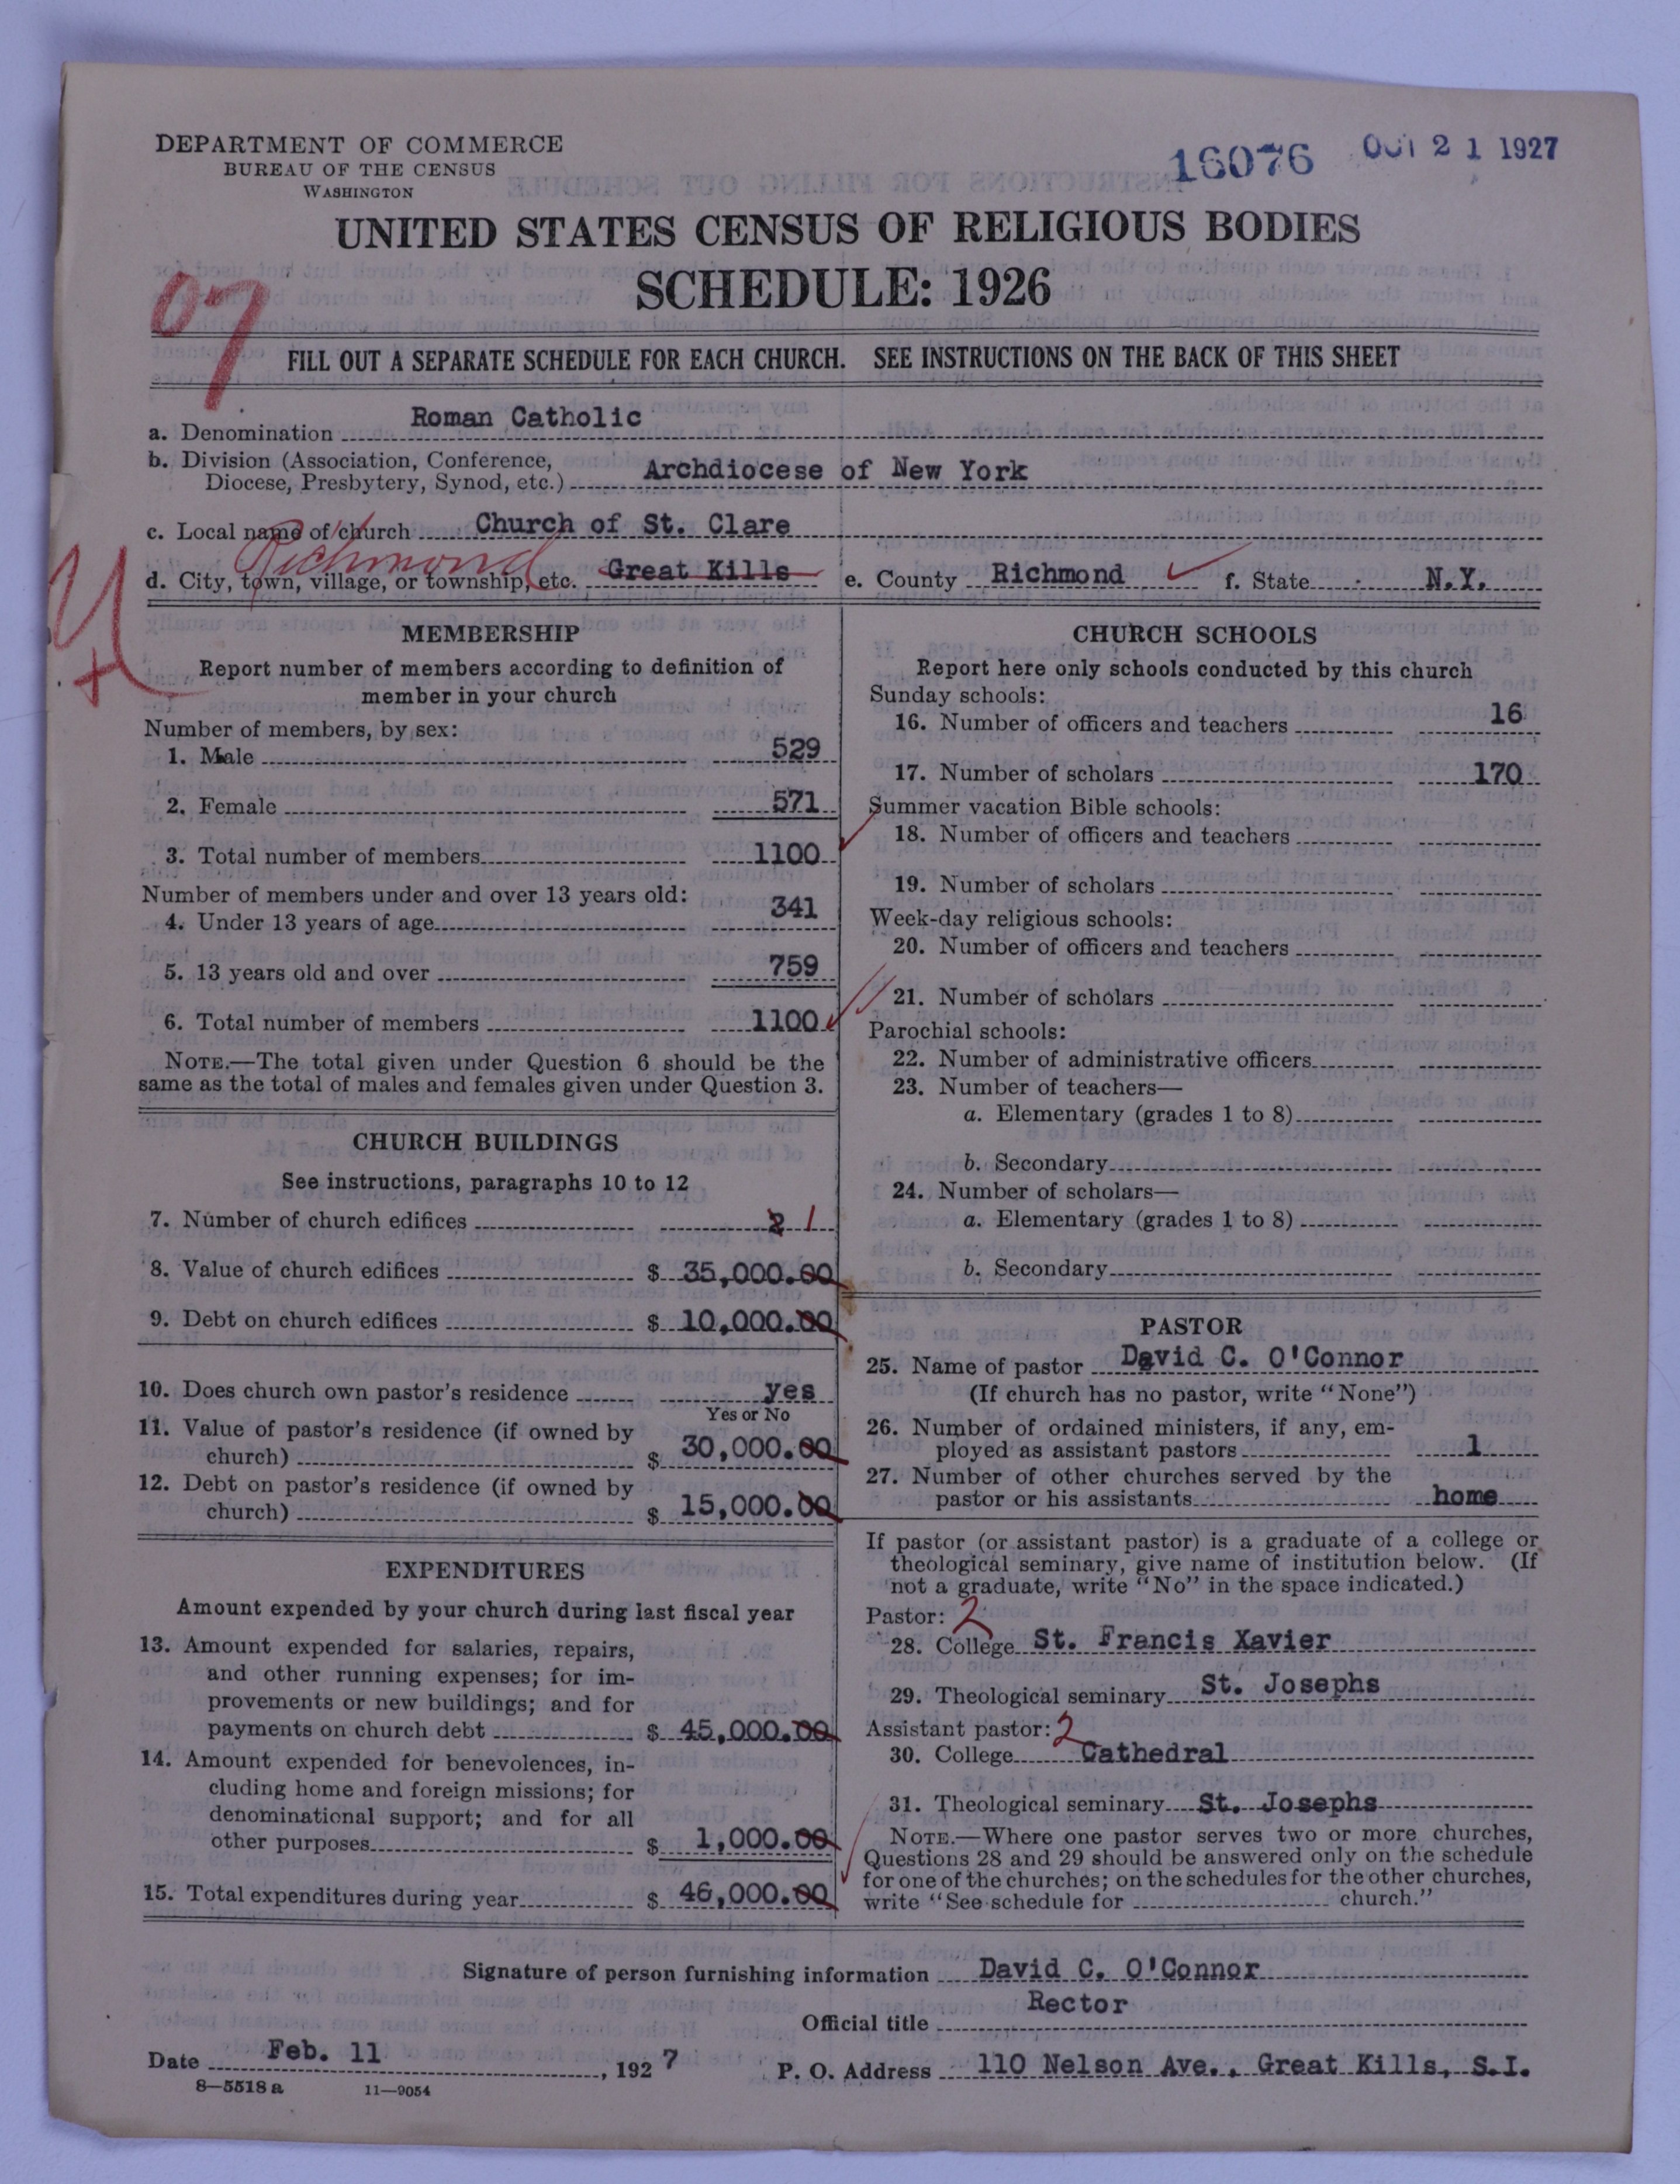 DEPARTMENT OF COMMERCE
BUREAU OF THE CENSUS
WASHINGTON
16076 OCT 21 1927
UNITED STATES CENSUS OF RELIGIOUS BODIES
SCHEDULE: 1926
07
FILL OUT A SEPARATE SCHEDULE FOR EACH CHURCH. SEE INSTRUCTIONS ON THE BACK OF THIS SHEET
a. Denomination Roman Catholic
b. Division (Association, Conference,
Diocese, Presbytery, Synod, etc.) Archdiocese of New York
c. Local name of church Church of St. Clare
Richmond
d. City, town, village, or township, etc. Great Kills e. County Richmond f. State N.Y.
MEMBERSHIP
Report number of members according to definition of
member in your church
Number of members, by sex:
1. Male 529
2. Female 571
3. Total number of members 1100
Number of members under and over 13 years old:
4. Under 13 years of age 341
5. 13 years old and over 759
6. Total number of members 1100
NOTE.—The total given under Question 6 should be the
same as the total of males and females given under Question 3.
CHURCH BUILDINGS
See instructions, paragraphs 10 to 12
7. Number of church edifices 2 1
8. Value of church edifices $ 35,000.00
9. Debt on church edifices $ 10,000.00
10. Does church own pastor's residence yes
Yes or No
11. Value of pastor's residence (if owned by
church) $ 30,000.00
12. Debt on pastor's residence (if owned by
church) $ 15,000.00
EXPENDITURES
Amount expended by your church during last fiscal year
13. Amount expended for salaries, repairs,
and other running expenses; for im-
provements or new buildings; and for
payments on church debt $ 45,000.00
14. Amount expended for benevolences, in-
cluding home and foreign missions; for
denominational support; and for all
other purposes $ 1,000.00
15. Total expenditures during year $ 46,000.00
CHURCH SCHOOLS
Report here only schools conducted by this church
Sunday schools:
16. Number of officers and teachers 16
17. Number of scholars 170
Summer vacation Bible schools:
18. Number of officers and teachers
19. Number of scholars
Week-day religious schools:
20. Number of officers and teachers
21. Number of scholars
Parochial schools:
22. Number of administrative officers
23. Number of teachers—
a. Elementary (grades 1 to 8)
b. Secondary
24. Number of scholars—
a. Elementary (grades 1 to 8)
b. Secondary
PASTOR
25. Name of pastor David C. O'Connor
(If church has no pastor, write "None")
26. Number of ordained ministers, if any, em-
ployed as assistant pastors 1
27. Number of other churches served by the
pastor or his assistants home
If pastor (or assistant pastor) is a graduate of a college or
theological seminary, give name of institution below. (If
not a graduate, write "No" in the space indicated.)
Pastor: 2
28. College St. Francis Xavier
29. Theological seminary St. Josephs
Assistant pastor: 2
30. College Cathedral
31. Theological seminary St. Josephs
NOTE.—Where one pastor serves two or more churches,
Questions 28 and 29 should be answered only on the schedule
for one of the churches; on the schedules for the other churches,
write "See schedule for church."
Signature of person furnishing information David C. O'Connor
Official title Rector
Date Feb. 11, 1927 P. O. Address 110 Nelson Ave., Great Kills, S.I.
8—5518 a 11—9054